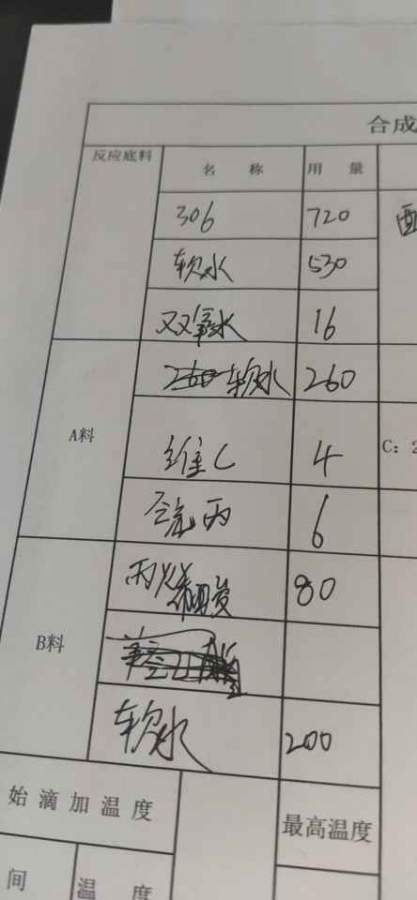 合成
反应底料 名 称 用 量
306 720
软水 530
双氧水 16
软水 260
A料
维C 4
C:2
巯丙 6
丙烯酸 80
B料
软水 200
始滴加温度
最高温度
间 温 度